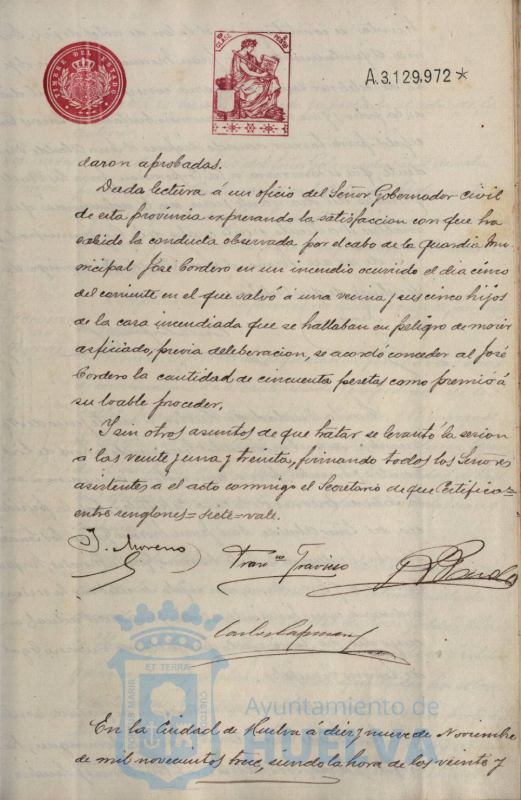 TIMBRE DEL ESTADO
CLASE
PESETA
A.3.129.972*
daron aprobadas.
Dada lectura á un oficio del Señor Gobernador Civil
de esta provincia expresando la satisfaccion con que ha
sabido la conducta observada por el cabo de la Guardia Mu-
nicipal José Cordero en un incendio ocurrido el dia cinco
del corriente en el que salvó á una vecina y sus cinco hijos
de la casa incendiada que se hallaban en peligro de morir
asficiado, previa deliberacion, se acordó conceder al José
Cordero la cantidad de cincuenta pesetas como premio á
su loable proceder.
Y sin otros asuntos de que tratar se levantó la sesion
á las veinte y una y treinta, firmando todos los Señores
asistentes a el acto conmigo el Secretario de que Certifico=
entre renglones=siete=vale.
J. Moreno
Franco Travieso
Carlos
PORTUS MARIS ET TERRAE CUSTODIA
Ayuntamiento de
HUELVA
En la Ciudad de Huelva á diez y nueve de Noviembre
de mil novecientos trece, siendo la hora de las veinte y